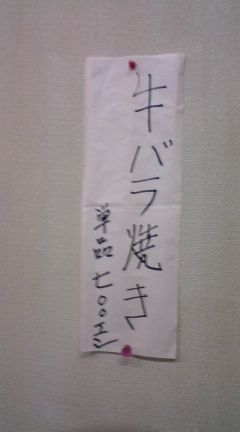 牛バラ焼き
単品 七〇〇エン